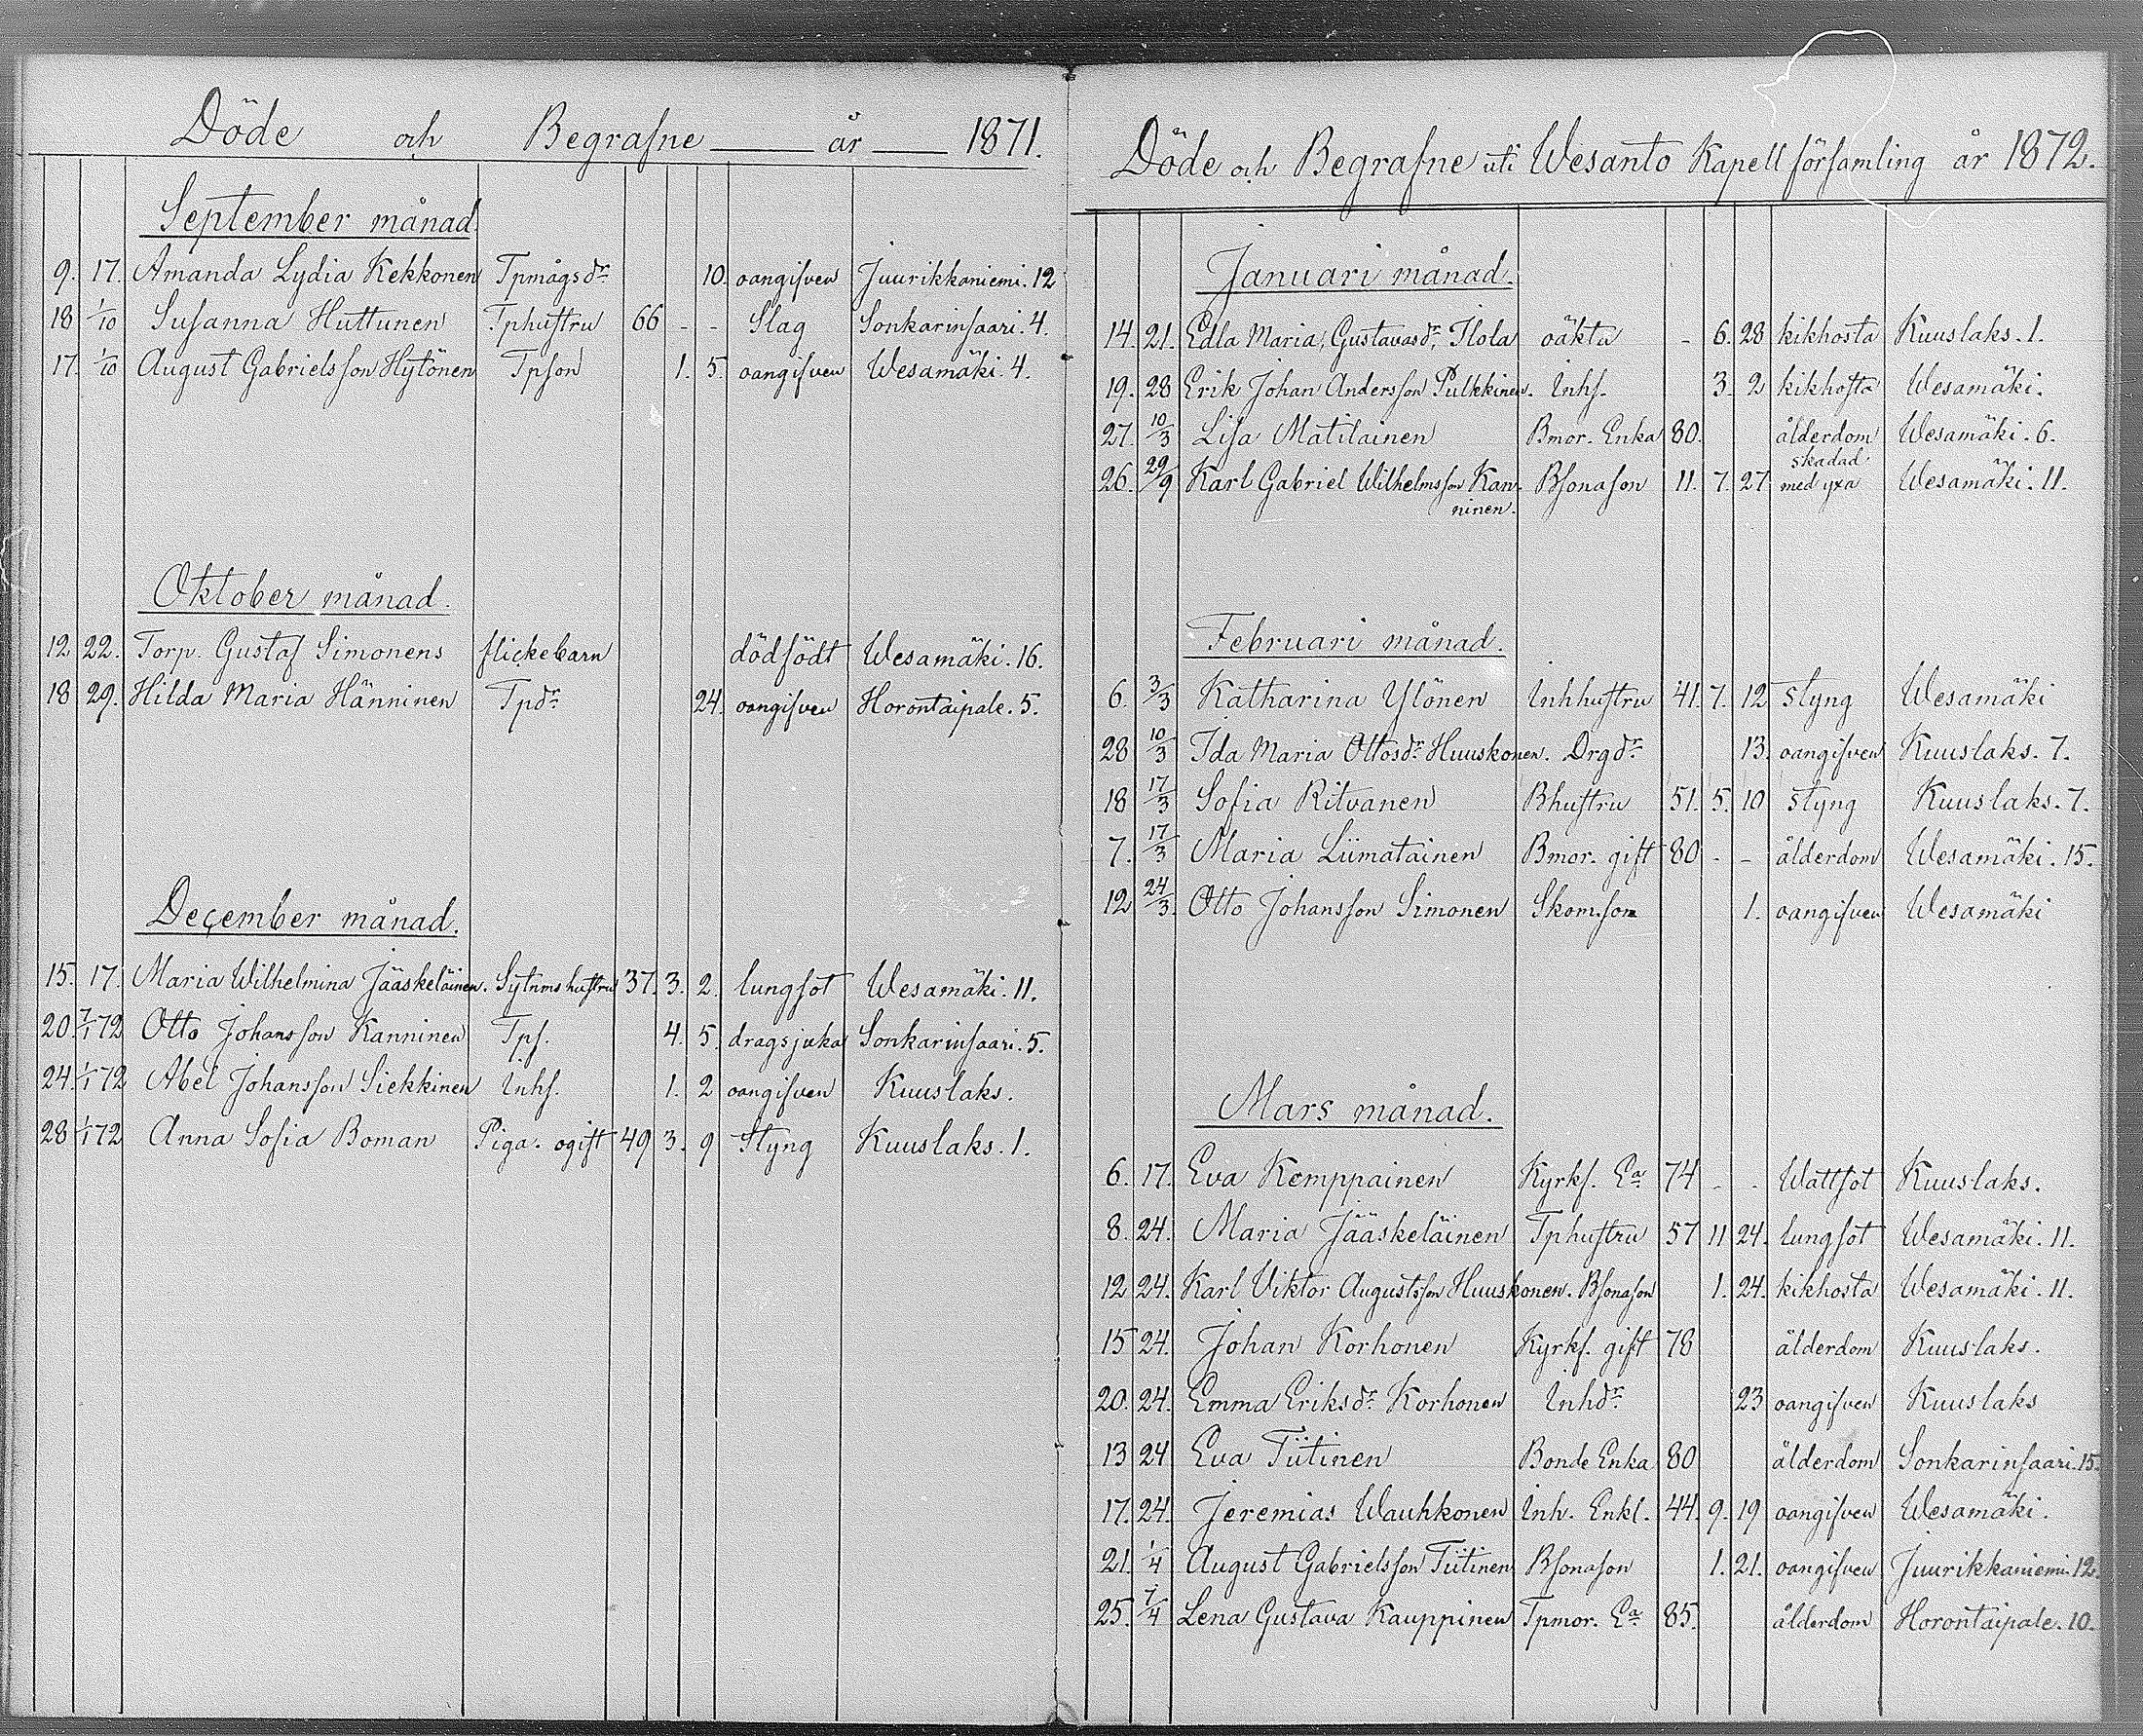 Döde och Begrafne — år — 1871.
September månad
9. 17. Amanda Lydia Kekkonen Tpmågsdr 10. oangifven Juurikkaniemi. 12
18 1/10 Susanna Huttunen Tphustru 66 - - Slag Sonkarinsaari. 4.
17. 1/10 August Gabrielsson Hytönen Tpson 1. 5. oangifven Wesamäki. 4.
Oktober månad.
12 22. Torp. Gustaf Simonens flickebarn dödfödt Wesamäki. 16.
18 29. Hilda Maria Hänninen Tpdr 24. oangifven Horontaipale. 5.
December månad.
15. 17. Maria Wilhelmina Jääskeläinen. Sytnmshustru 37. 3. 2. lungsot Wesamäki. 11.
20. 7/1 72 Otto Johansson Kanninen Tps. 4. 5. dragsjuka Sonkarinsaari. 5.
24. 1/1 72 Abel Johansson Siekkinen Inhs. 1. 2 oangifven Kuuslaks.
28 1/1 72 Anna Sofia Boman Piga. ogift 49 3. 9 Styng Kuuslaks. 1.
Döde och Begrafne uti Wesanto Kapellförsamling år 1872.
Januari månad.
14. 21. Edla Maria, Gustavasdr, Ilola oäkta - 6. 28 kikhosta Kuuslaks. 1.
19. 28 Erik Johan Andersson Pulkkinen. Inhs. 3. 2 kikhosta Wesamäki.
27. 10/3 Lisa Matilainen Bmor. Enka 80. ålderdom Wesamäki. 6.
26. 29/9 Karl Gabriel Wilhelmsson Kan- Bsonason 11. 7. 27 skadad med yxa Wesamäki. 11.
ninen.
Februari månad.
6. 3/3 Katharina Ylönen Inhhustru 41. 7. 12 styng Wesamäki
28 10/3 Ida Maria Ottosdr Huuskonen. Drgdr 13. oangifven Kuuslaks. 7.
18 17/3 Sofia Ritvanen Bhustru 51. 5. 10 styng Kuuslaks. 7.
7. 17/3 Maria Liimatainen Bmor. gift 80 - - ålderdom Wesamäki. 15.
12 24/3. Otto Johansson Simonen Skom.son 1. oangifven Wesamäki
Mars månad.
6. 17. Eva Kemppainen Kyrks. Ea 74 - - Wattsot Kuuslaks.
8. 24. Maria Jääskeläinen Tphustru 57 11 24. lungsot Wesamäki. 11.
12 24. Karl Viktor Augustsson Huuskonen. Bsonason 1. 24. kikhosta Wesamäki. 11.
15 24. Johan Korhonen Kyrks. gift 78 ålderdom Kuuslaks.
20. 24. Emma Eriksdr Korhonen Inhdr 23 oangifven Kuuslaks
13 24 Eva Tiitinen Bonde Enka 80 ålderdom Sonkarinsaari. 15.
17. 24. Jeremias Wauhkonen Inh. Enkl. 44. 9. 19 oangifven Wesamäki.
21. 1/4 August Gabrielsson Tiitinen Bsonason 1. 21. oangifven Juurikkaniemi. 12.
25. 7/4 Lena Gustava Kauppinen Tpmor. Ea 85. ålderdom Horontaipale. 10.